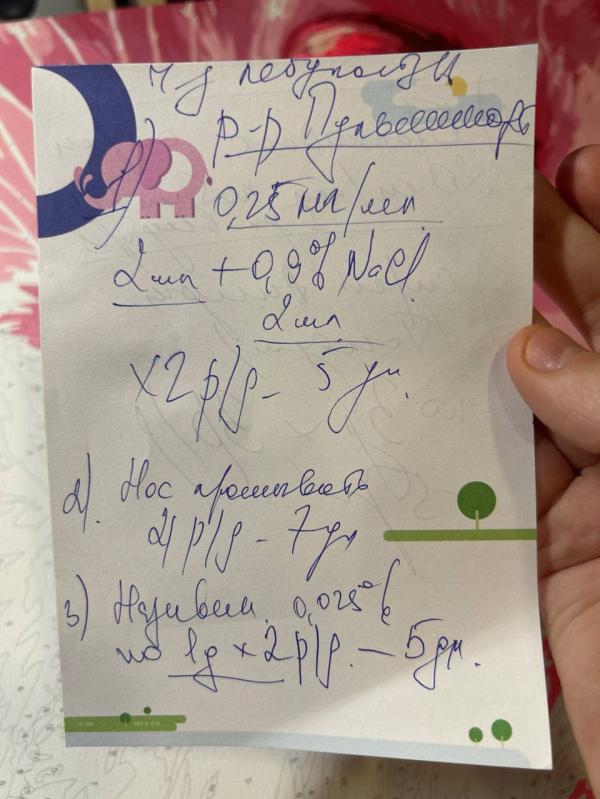 ч/з небулайзер
1) р-р Пульмикорт
0,25 мг/мл
2 мл + 0,9% NaCl
2 мл
x 2 р/д - 5 дн.
2). Нос промывать
4 р/д - 7 дн
3) Називин 0,025%
по 1д x 2 р/д. - 5 дн.